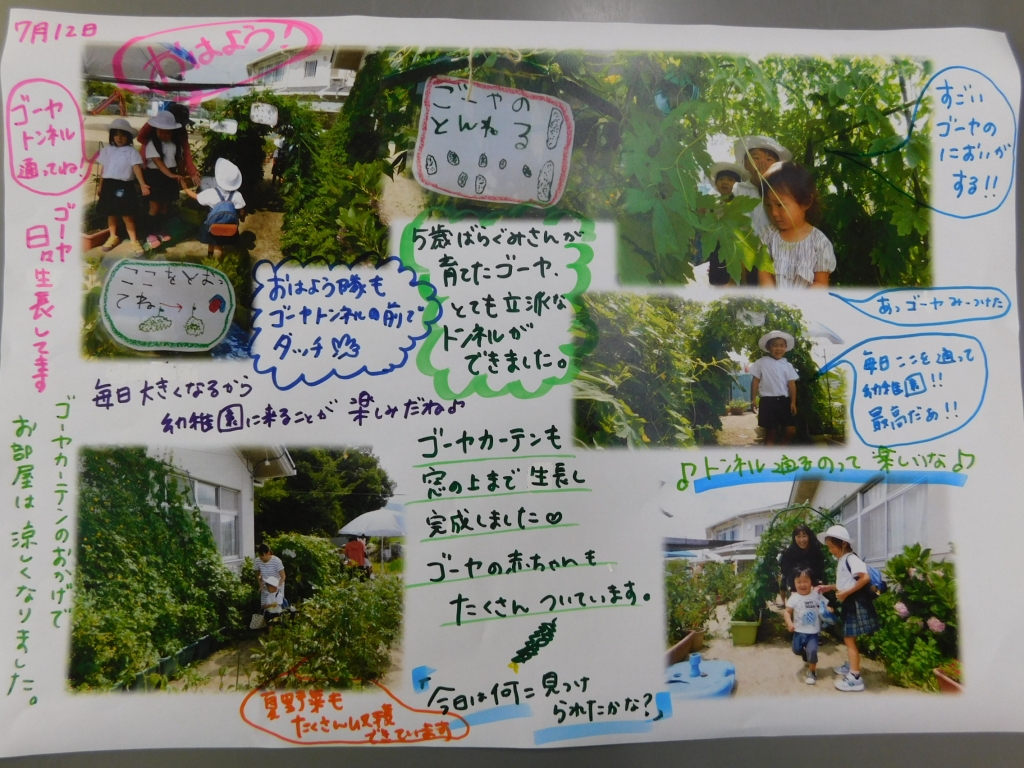 7月12日
おはよう!
ゴーヤ
トンネル
通ってね!
ゴーヤ
日々生長してます
ごーやの
とんねる
すごい
ゴーヤの
においが
する!!
ここをとおっ
てね→
おはよう隊も
ゴーヤトンネルの前で
タッチ
5歳ばらぐみさんが
育てたゴーヤ、
とても立派な
トンネルが
できました。
あっゴーヤみーつけた
毎日ここを通って
幼稚園!!
最高だぁ!!
毎日大きくなるから
幼稚園に来ることが楽しみだね♪
♪トンネル通るのって楽しいな♪
ゴーヤカーテンのおかげで
お部屋は涼しくなりました。
ゴーヤカーテンも
窓の上まで生長し
完成しました♡
ゴーヤの赤ちゃんも
たくさんついています。
夏野菜も
たくさん収穫
できています
「今日は何 見つけ
られたかな?」